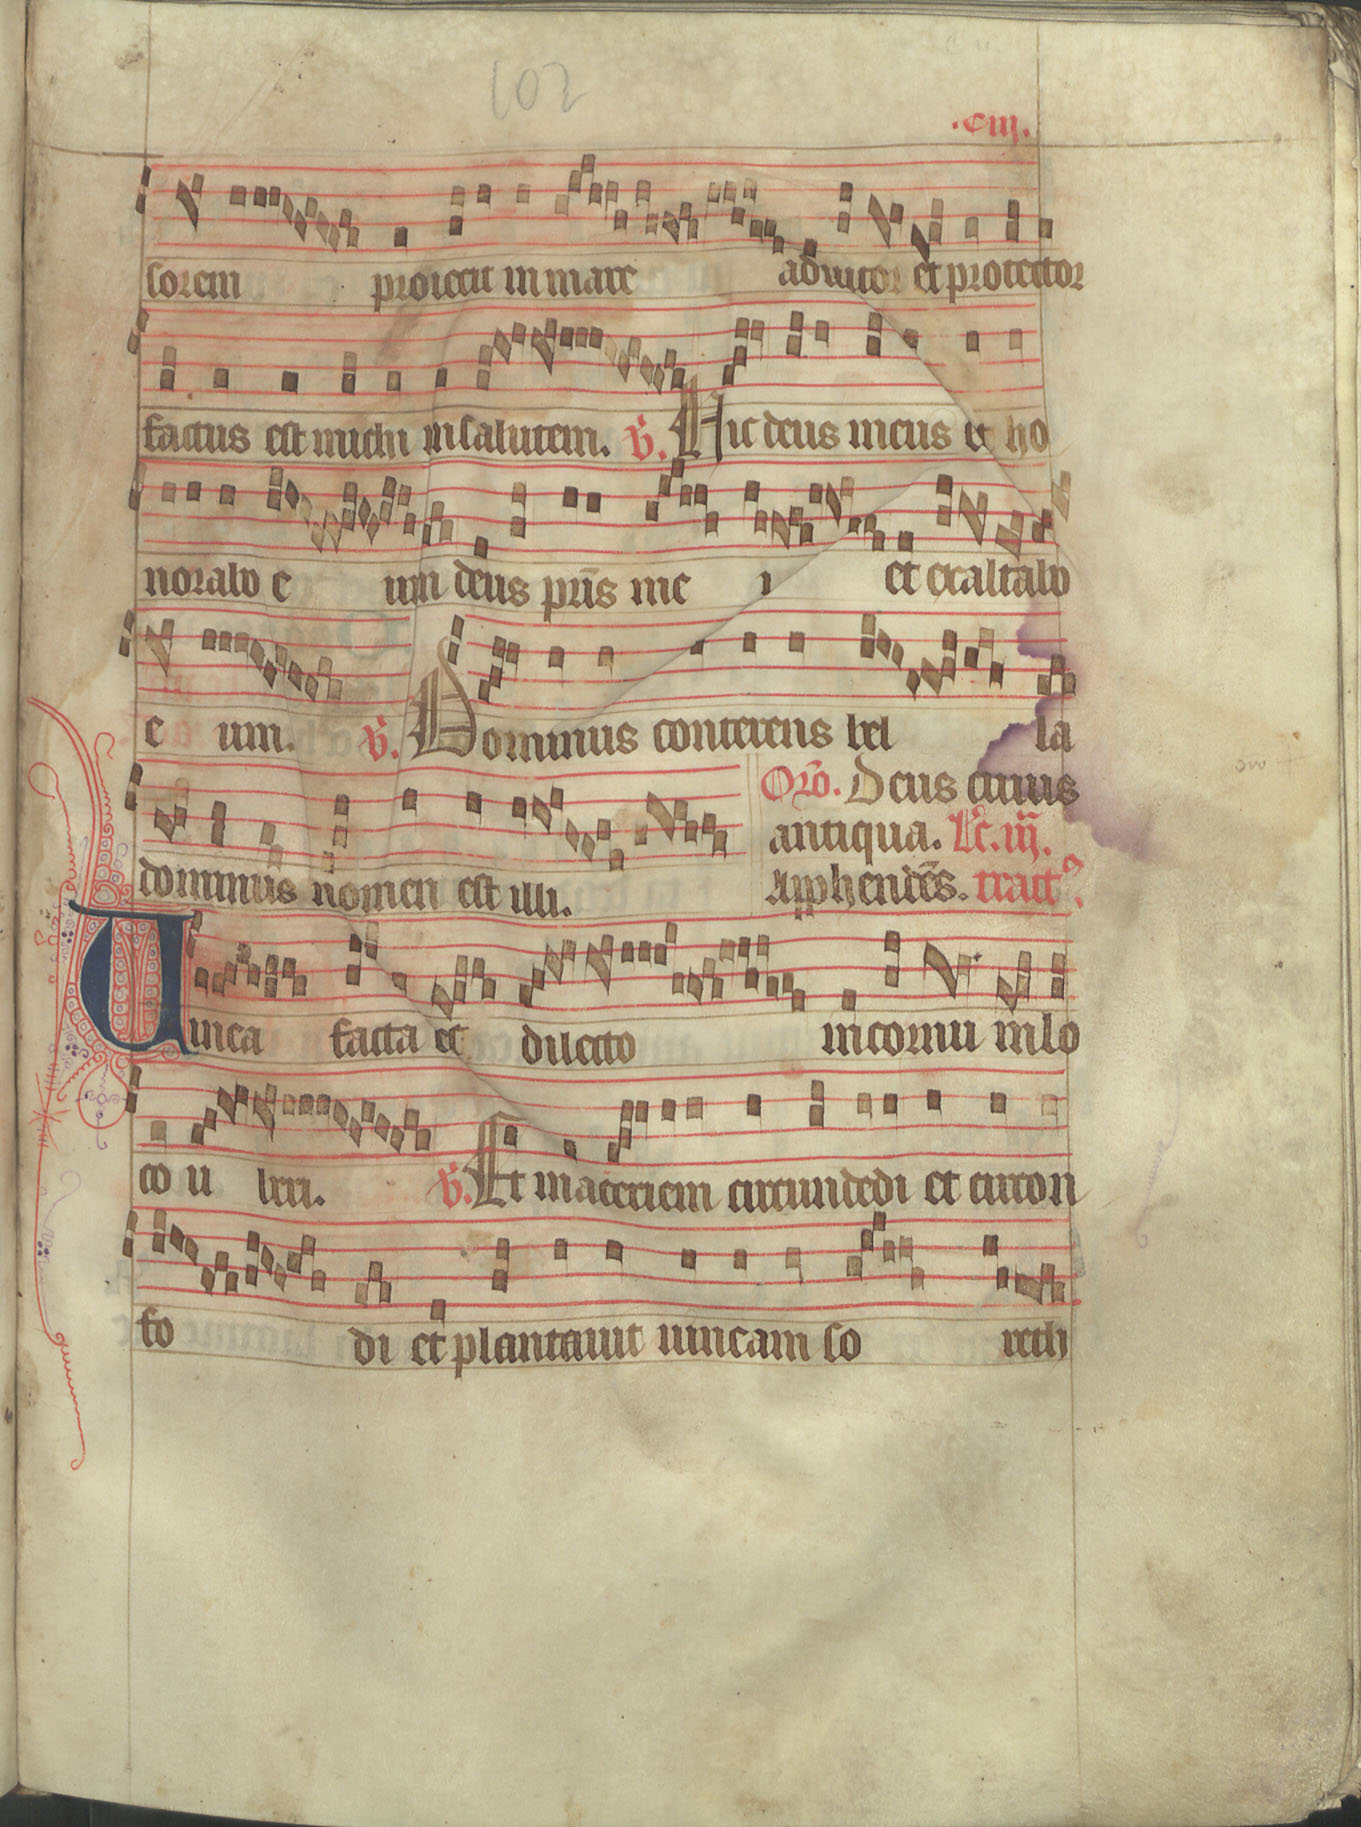 102
.ciij.
sorem proiecit in mare adiutor et protector
factus est michi in salutem. V. Hic deus meus et ho
norabo e um deus pr̄is me i et exaltabo
e um. V. Dominus conterens bel la
dominus nomen est illi.
Or̄o. Deus cuius
antiqua. Lc̄. iij.
Apphendēs. tractꝰ.
Uinea facta est dilecto in cornu in lo
co u beri. V. Et maceriem circundedi et circon
fo di et plantauit uineam so reth